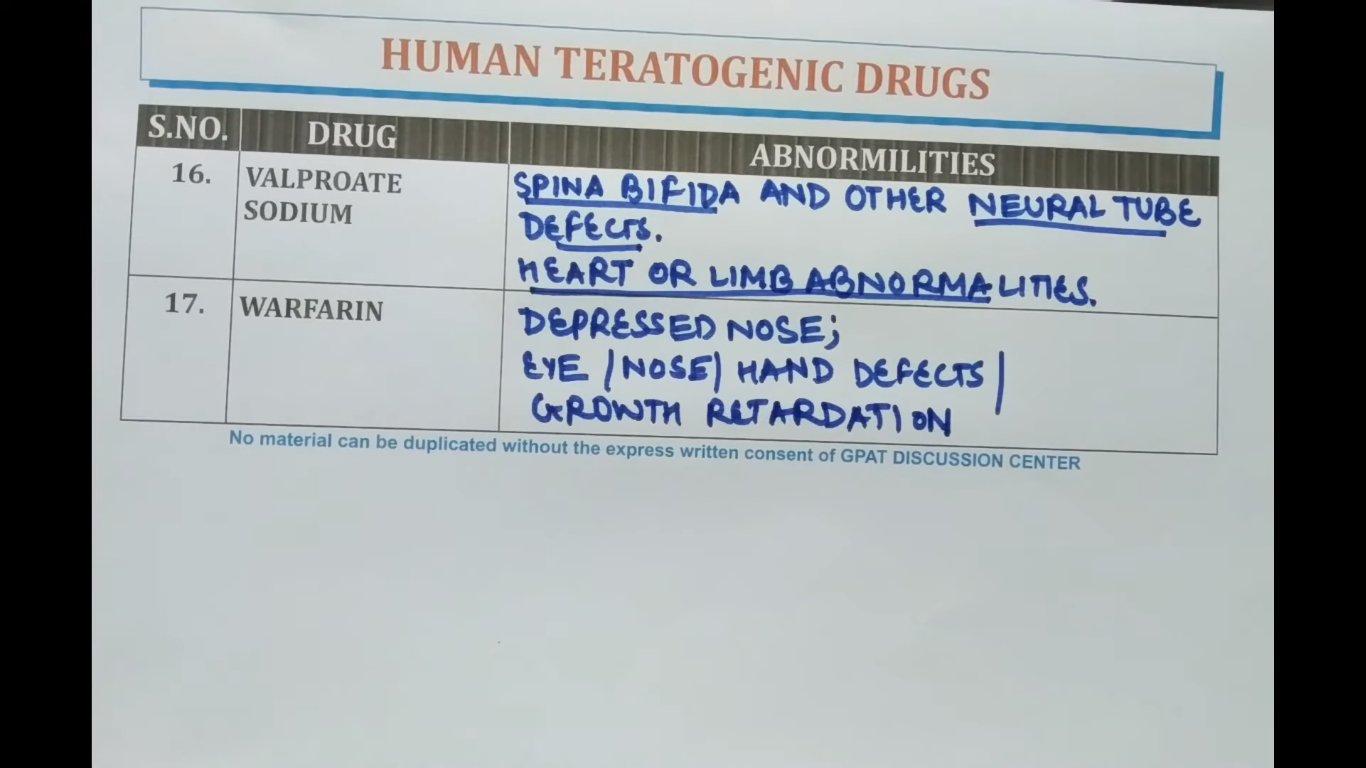 HUMAN TERATOGENIC DRUGS
S.NO. DRUG ABNORMILITIES
16. VALPROATE SODIUM
SPINA BIFIDA AND OTHER NEURAL TUBE
DEFECTS.
HEART OR LIMB ABNORMALITIES.
17. WARFARIN
DEPRESSED NOSE;
EYE / NOSE / HAND DEFECTS /
GROWTH RETARDATION
No material can be duplicated without the express written consent of GPAT DISCUSSION CENTER